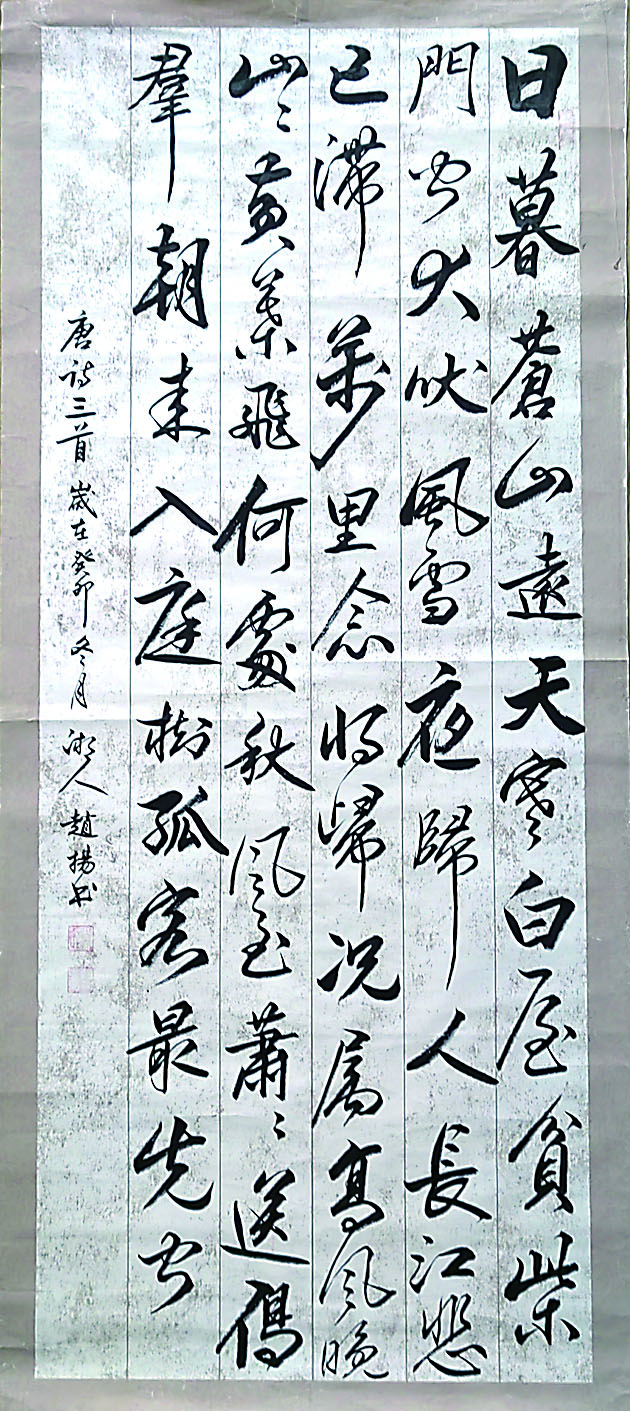 日暮蒼山遠天寒白屋貧柴
門聞犬吠風雪夜歸人長江悲
已滯萬里念將歸況屬高風晚
山〻黃葉飛何處秋風至蕭〻送鴈
羣朝來入庭樹孤客最先聞
唐詩三首歲在癸卯冬月湘人趙揚书